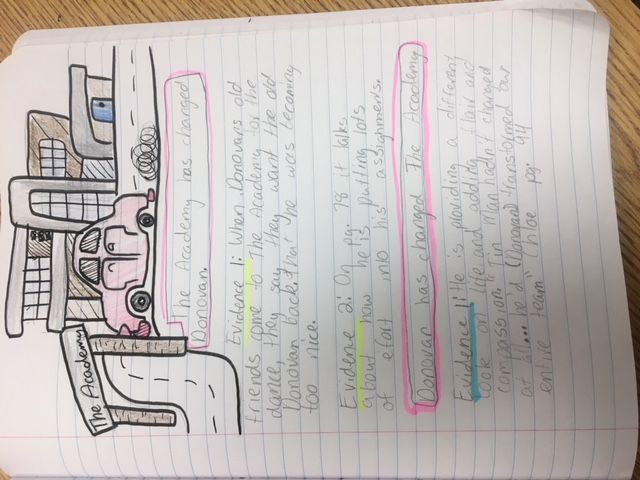 The Academy
The Academy has changed
Donovan.
Evidence 1: When Donovans old
friends come to The Academy for the
dance, they say they want the old
Donovan back. That he was becoming
too nice.
Evidence 2: On pg. 78 it talks
about how he is putting lots
of efort into his assignments.
Donovan has changed The Academy
Evidence 1: He is providing a different
look on life and adding flair and
compassion. "Tin Man hadn't changed
at all... he'd (Donovan) transformed our
entire team" Chloe pg. 94